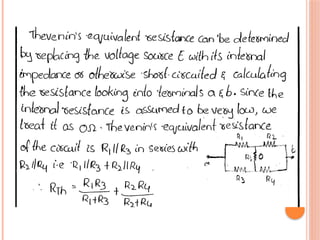 Thevenin's equivalent resistance can be determined
by replacing the voltage source E with its internal
impedance or otherwise short circuited & calculating
the resistance looking into terminals a & b. since the
internal resistance is assumed to be very low, we
treat it as 0Ω. Thevenin's equivalent resistance
of the circuit is R1||R3 in series with
R2||R4 i.e R1||R3 + R2||R4
R1 R2
R3 R4
∴ RTh = R1R3 / R1+R3 + R2R4 / R2+R4